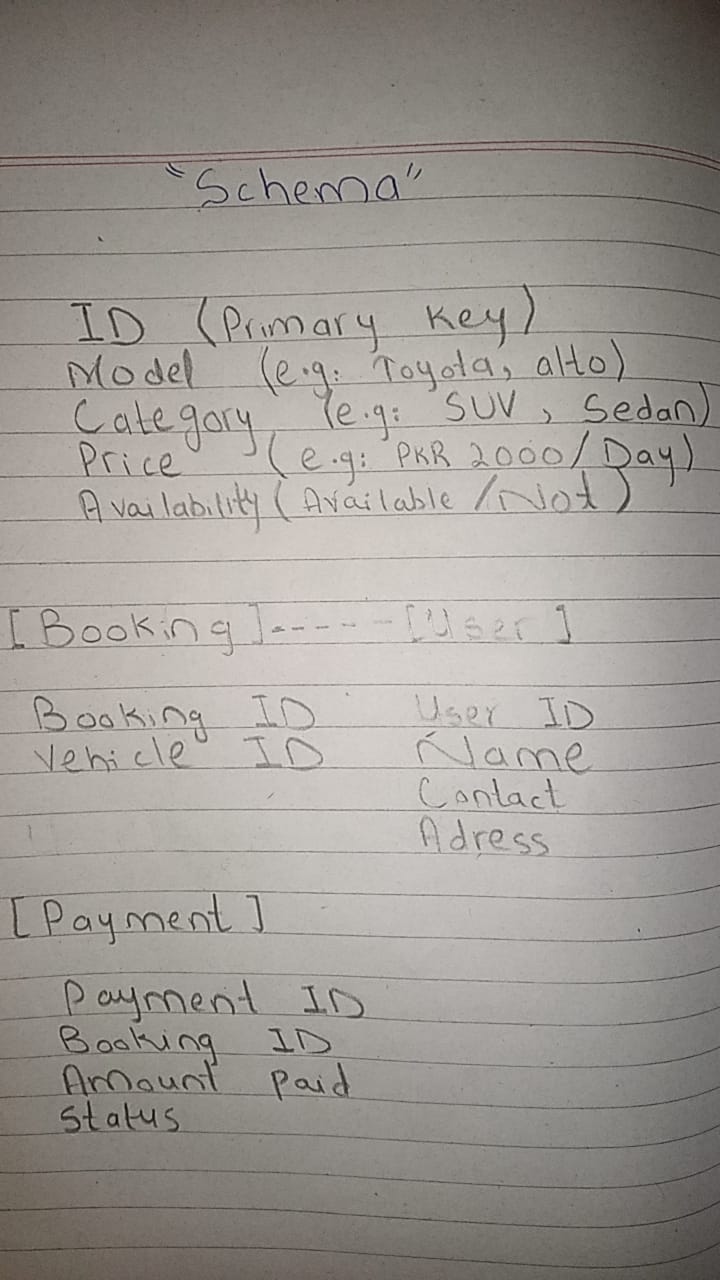 "Schema"
ID (Primary Key)
Model (e.g: Toyota, alto)
Category (e.g: SUV, Sedan)
Price (e.g: PKR 2000/Day)
Availability (Available/Not)
[Booking]------[User]
Booking ID User ID
Vehicle ID Name
Contact
Adress
[Payment]
Payment ID
Booking ID
Amount paid
Status